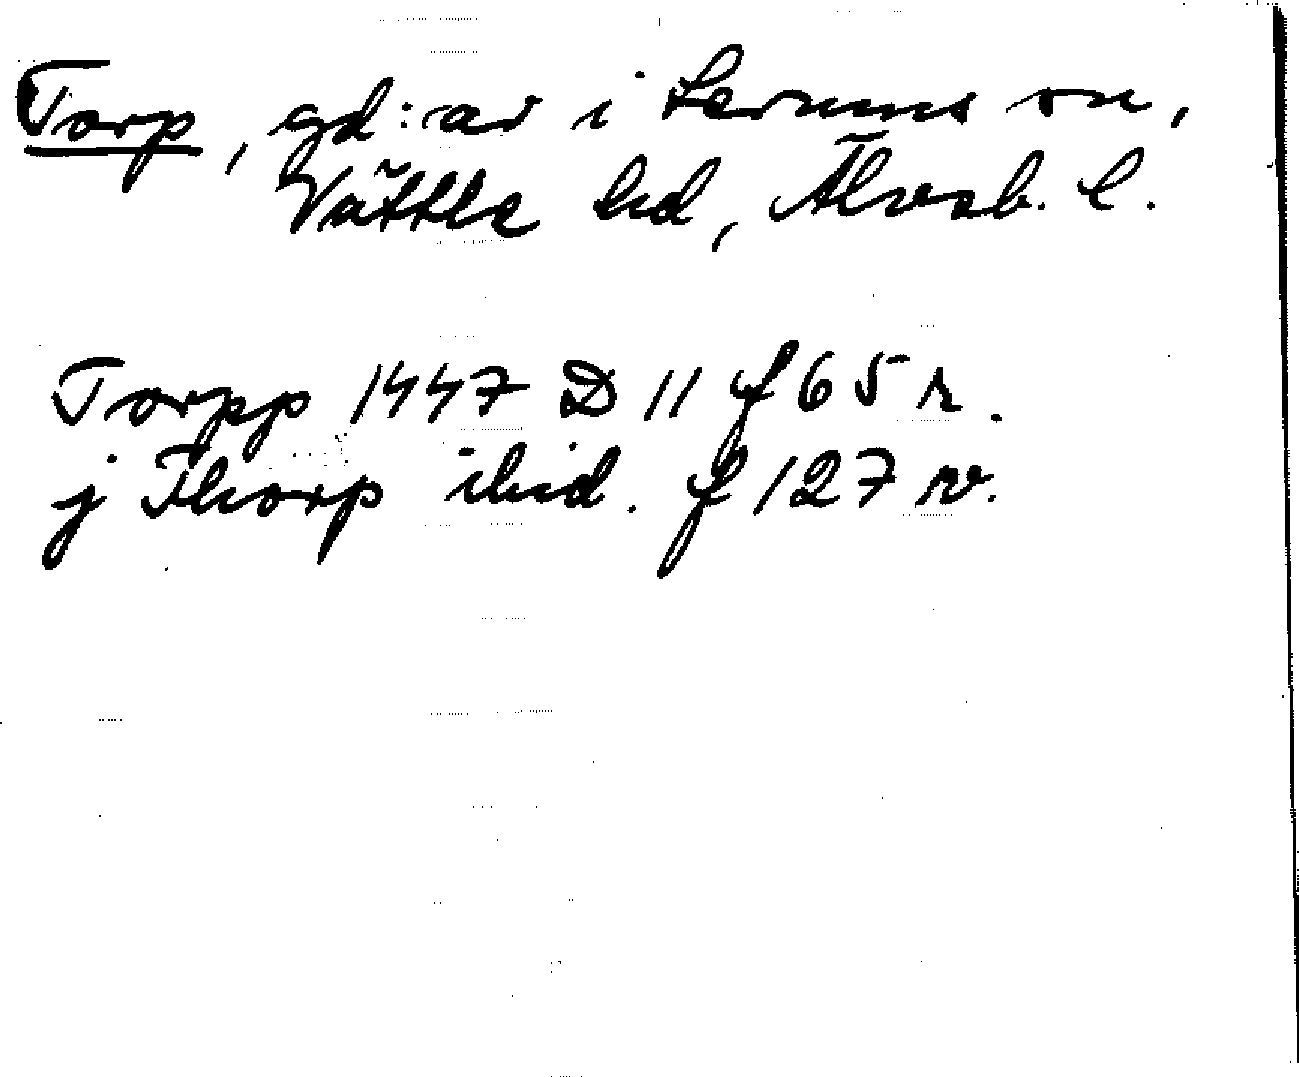 Torp, gd:ar i Lerums sn,
Vättle hd, Älvsb. l.
Torpp 1447 D 11 f 65 r.
j Thorp ibid. f 127 v.